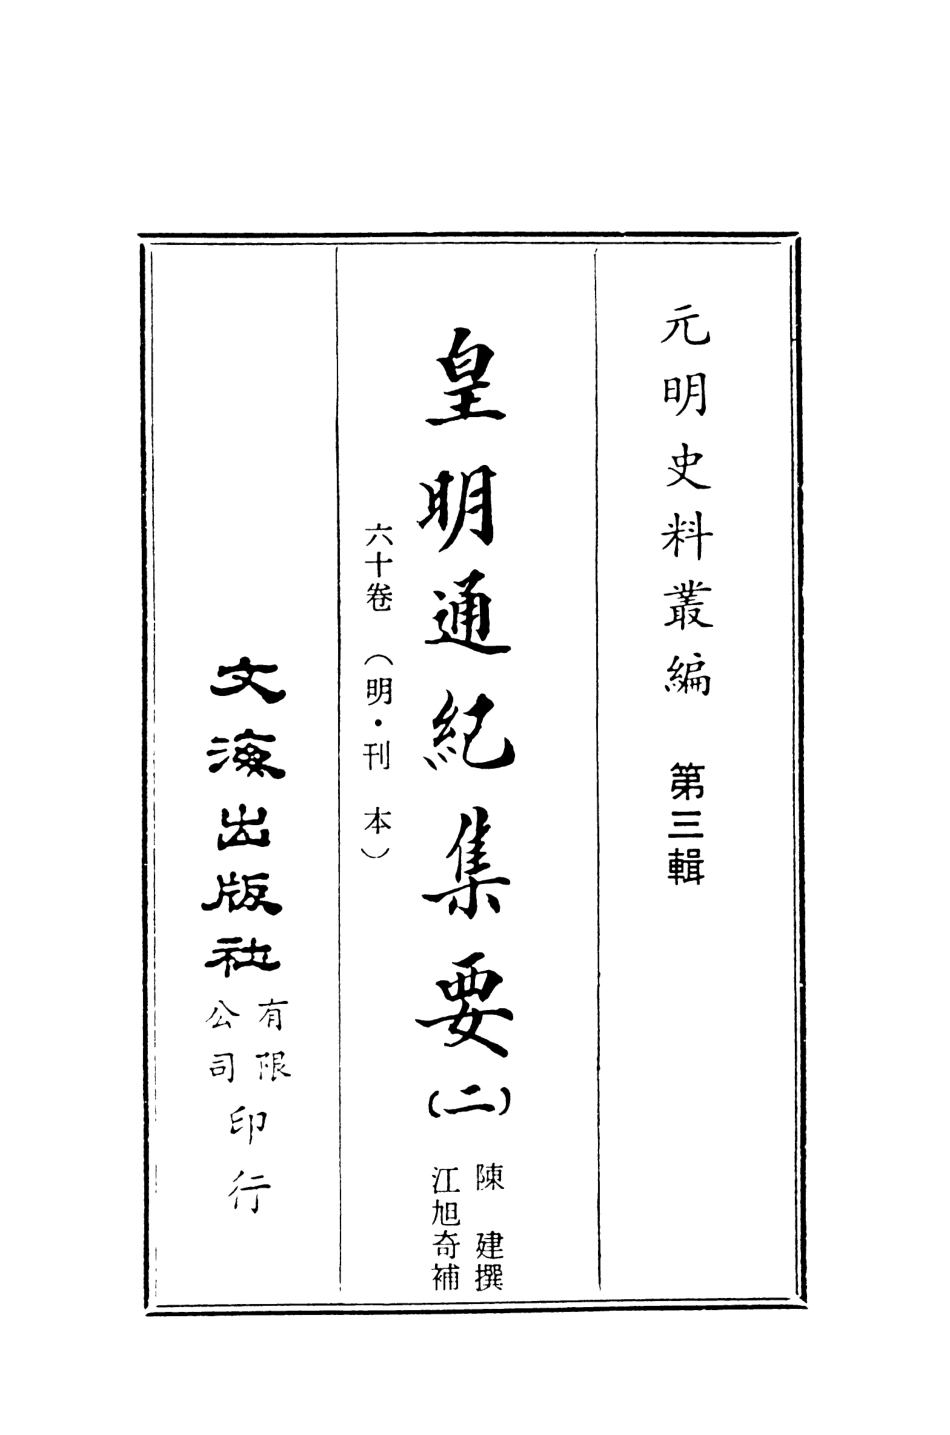 元明史料叢編 第三輯
皇明通紀集要(二)
陳 建撰
江旭奇補
六十卷 (明·刊 本)
文海出版社
有限
公司
印行